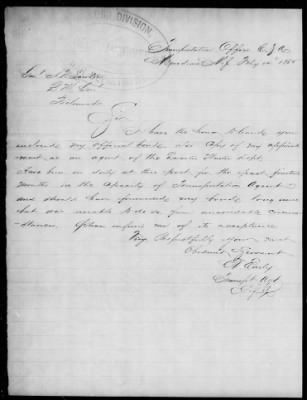 DIVISION
Transportation Office C.S.A.
Meridian Miss Feby 1865
Genl
Q.M. Genl
Richmond
Sir
I have the honor to hand you
enclosed my official bond also copy of my appoint
ment as an agent of the Quarter Master Dept.
I have been on duty at this post for the past
months in the capacity of Transportation Agent
and should have forwarded my bond long since
but was unable to do so from unavoidable circum
stances. Please inform me of its acceptance
Very Respectfully your most
Obedient Servant
Early
Transpt Agt